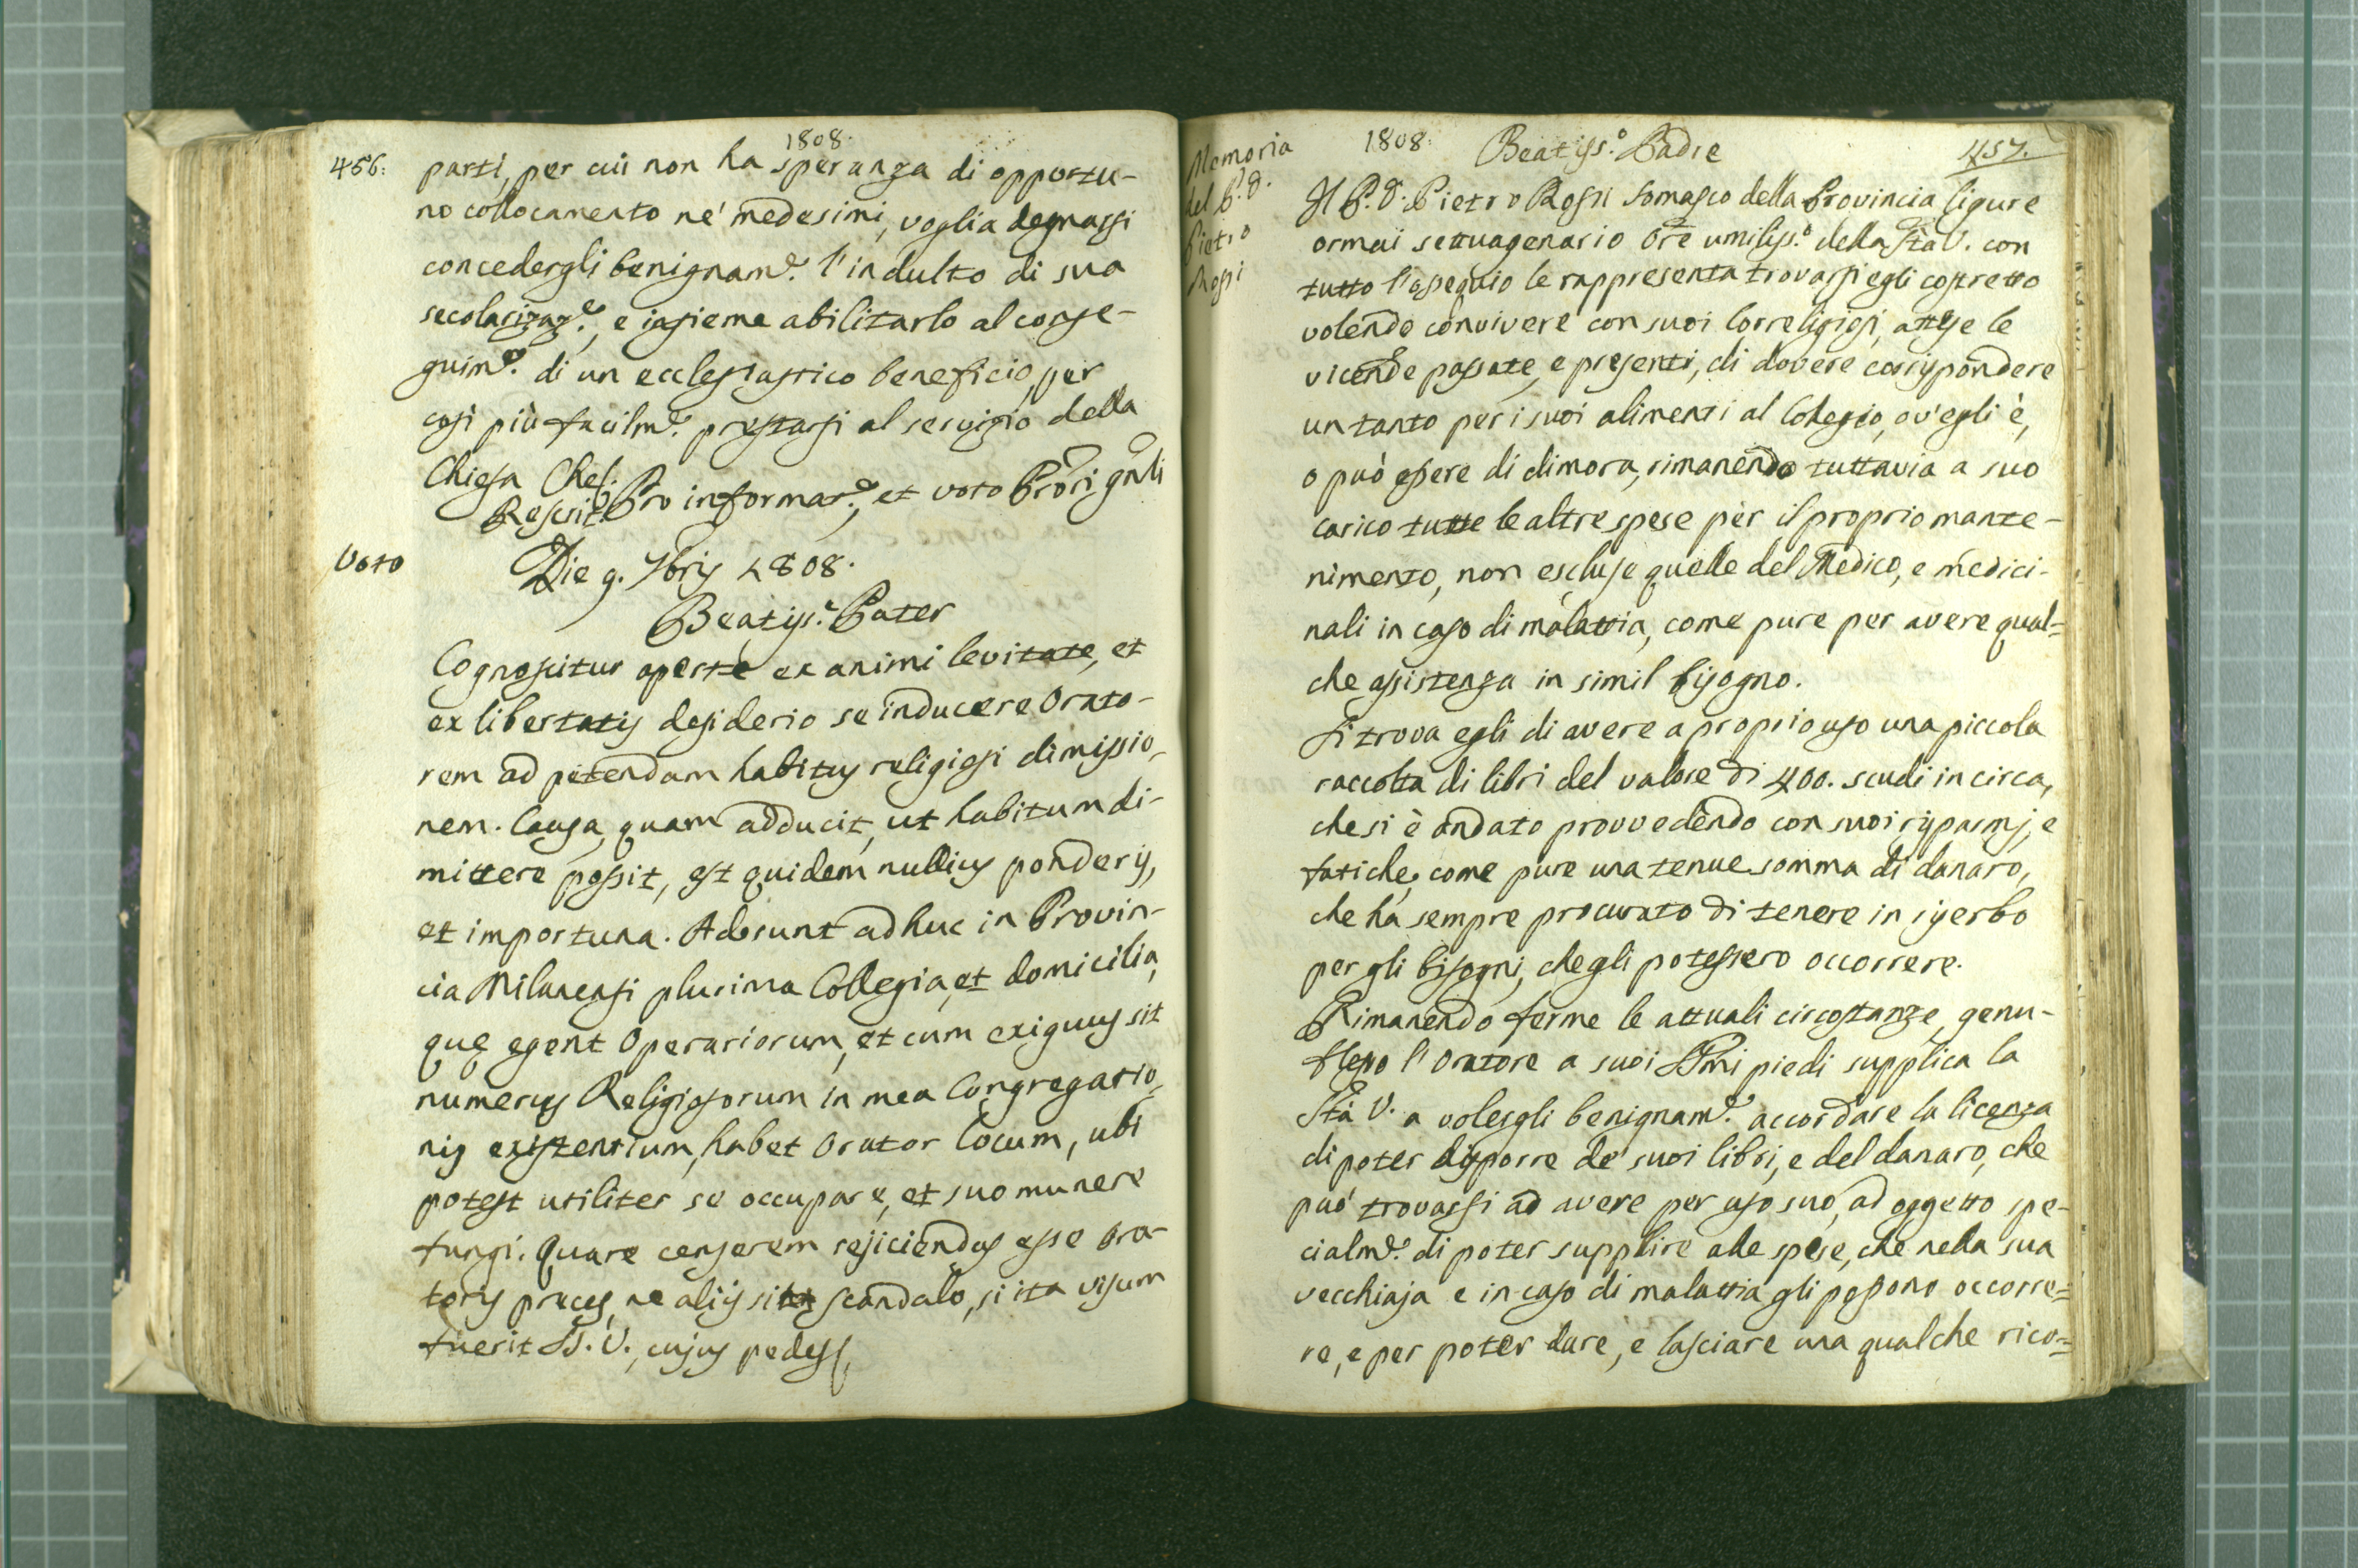 1808.
456.
parti, per cui non ha speranza di opportu-
no collocamento ne' medesimi, voglia degnarsi
concedergli benignam.e l'indulto di sua
secolarizaz.e, e insieme abilitarlo al conse-
guim.o di un ecclesiastico beneficio, per
così più facilm.e prestarsi al servizio della
Chiesa Che/.
Rescrit. Pro informat.e, et voto Prõris gñlis
Voto
Die 9. 7bris 1808.
Beatiss.e Pater
Cognoscitur aperte ex animi levitate, et
ex libertatis desiderio se inducere Orato-
rem ad petendam habitus religiosi dimissio-
nem. Causa, quam adducit, ut habitum di-
mittere possit, est quidem nullius ponderis,
et importuna. Adsunt adhuc in Provin-
cia Milanensi plurima Collegia, et domicilia,
quę egent Operariorum, et cum exiguus sit
numerus Religiosorum in mea Congregatio-
nis existentium, habet Orator locum, ubi
potest utiliter se occupare, et suo munere
fungi. Quare censerem rejiciendas esse Ora-
toris preces, ne aliis sit scandalo, si ita visum
fuerit SS. V., cujus pedes/.
1808.
457.
Memoria
del P. D.
Pietro
Rossi
Beatiss.o Padre
Il P. D. Pietro Rossi Somasco della Provincia Ligure
ormai settuagenario Orẽ umiliss.o della Stà V. con
tutto l'ossequio le rappresenta trovarsi egli costretto
volendo convivere con suoi Correligiosi, attese le
vicende passate, e presenti, di dovere corrispondere
un tanto per i suoi alimenti al Collegio, ov'egli è,
o può essere di dimora, rimanendo tuttavia a suo
carico tutte le altre spese per il proprio mante-
nimento, non escluse quelle del Medico, e medici-
nali in caso di malattia, come pure per avere qual=
che assistenza in simil bisogno.
Si trova egli di avere a proprio uso una piccola
raccolta di libri del valore di 400. scudi in circa,
che si è andato provvedendo con suoi risparmj, e
fatiche, come pure una tenue somma di danaro,
che ha sempre procurato di tenere in iserbo
per gli bisogni, che gli potessero occorrere.
Rimanendo ferme le attuali circostanze, genu-
flesso l'Oratore a suoi SSmi piedi supplica la
Stà V. a volergli benignam.e accordare la licenza
di poter disporre de' suoi libri, e del danaro, che
può trovarsi ad avere per uso suo, ad oggetto spe-
cialm.e di poter supplire alle spese, che nella sua
vecchiaja e in caso di malattia gli possono occorre=
re, e per poter dare, e lasciare una qualche rico=